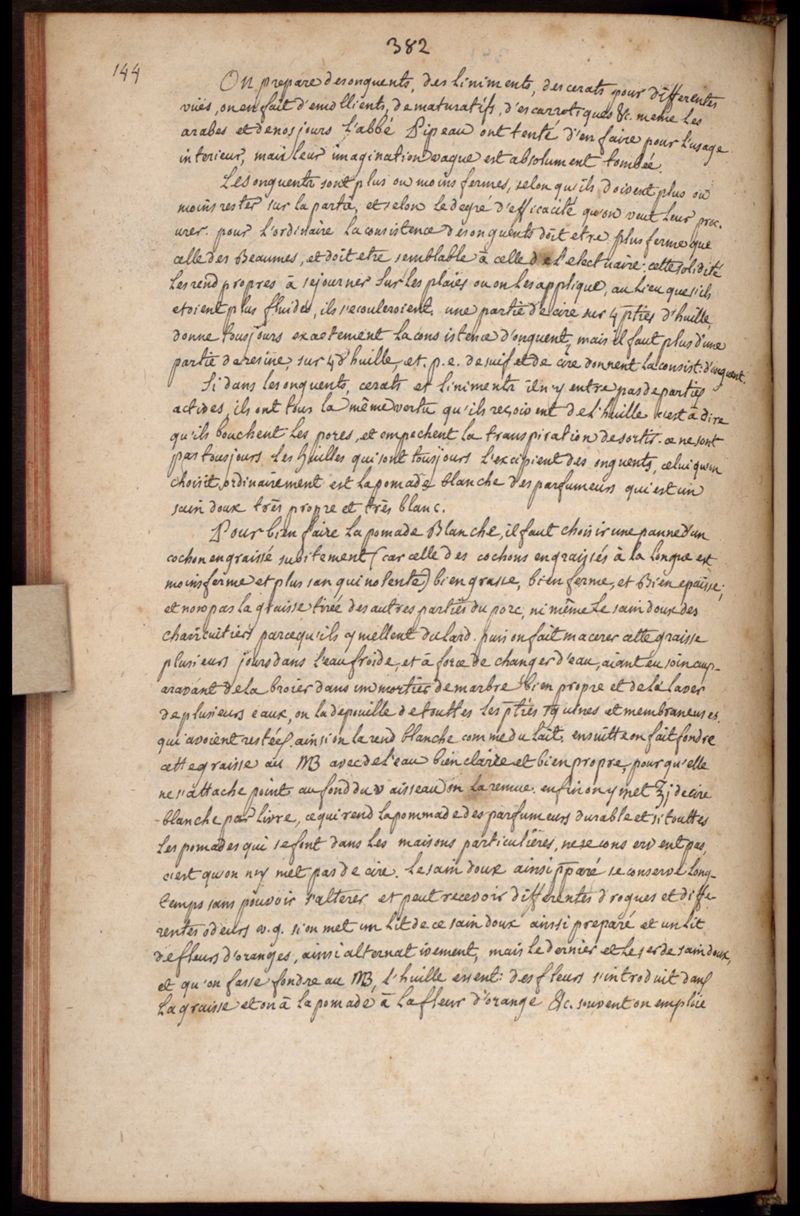 382
144
On prepare des onguents, des liniments, des cerats pour differentes
vuës, on en fait d'emollients, de maturatifs, d'escarrotiques &c. meme les
arabes et de nos jours l'abbé Pipeau ont tenté d'en faire pour l'usage
interieur, mais leur imagination vague est absolument tombée.
Les onguents sont plus ou moins fermes, selon qu'ils doivent plus ou
moins rester sur la partie, et selon le degre d'efficacité qu'on veut leur proc-
urer. pour l'ordinaire la consistence des onguents doit etre plus ferme que
celle des Beaumes, et doit etre semblable à celle de l'electuaire; cette solidité
les rend propres à sejourner sur les plaies ou on les applique, au lieu que s'ils
etoient plus fluides, ils s'ecouleroient, une partie de cire sur 4 p̄ties d'huille
donne tousjours exactement la consistence d'onguent, mais il faut plus d'une
partie de resine, sur 4 d'huille, et p. e. de suif et de cire donnent la consist: d'onguent.
Si dans les onguents, cerats et liniments il n'y entre pas de parties
actives, ils ont tous la même vertu qu'ils reçoivent de l'huille c'est à dire
qu'ils bouchent les pores, et empechent la transpiration de sortir. ce ne sont
pas tousjours les huilles qui sont tousjours l'excipient des onguents, celui qu'on
choisit ordinairement est la pomade blanche des parfumeurs qui est un
sain doux très propre et très blanc.
Pour bien faire la pomade Blanche, il faut choisir une panne d'un
cochon engraissé subitement (car celle des cochons engraissés à la longue est
moins ferme et plus sanguinolente) bien grasse, bien ferme, et Bien epaisse;
et non pas la graisse tirée des autres parties du porc, ni même le sain doux des
chaircuitiers parcequ'ils y mellent du lard. puis on fait macerer cette graisse
plusieurs jours dans l'eau froide, et à force de changer d'eau, aiant eu soin aup-
aravant de la broier dans un mortier de marbre bien propre et de la laver
de plusieurs eaux, on la depouille de touttes les p̄ties et membraneuses
qui avoient restées. ainsi on la rend blanche comme du lait. ensuitte on fait fondre
cette graisse au MB avec de l'eau bien claire et bien propre, pour qu'elle
ne s'attache point au fond du vaisseau on la remue. enfin on y met ℥j de cire
blanche par livre, ce qui rend la pommade des parfumeurs durable et si touttes
les pomades qui se font dans les maisons particulières, ne se conservent pas,
c'est qu'on n'y met pas de cire. Le sain doux ainsi p̄paré se conserve long-
temps sans pouvoir s'alterer et peut recevoir differentes drogues et diffe-
rentes odeurs v. g. si on met un lit de ce sain doux ainsi preparé et un lit
de fleurs d'oranges, ainsi alternativement, mais le dernier et le 1er de sain doux,
et qu'on fasse fondre au MB, l'huille essent: des fleurs s'introduit dans
la graisse et on à la pomade à la fleur d'orange &c. souvent on emploie